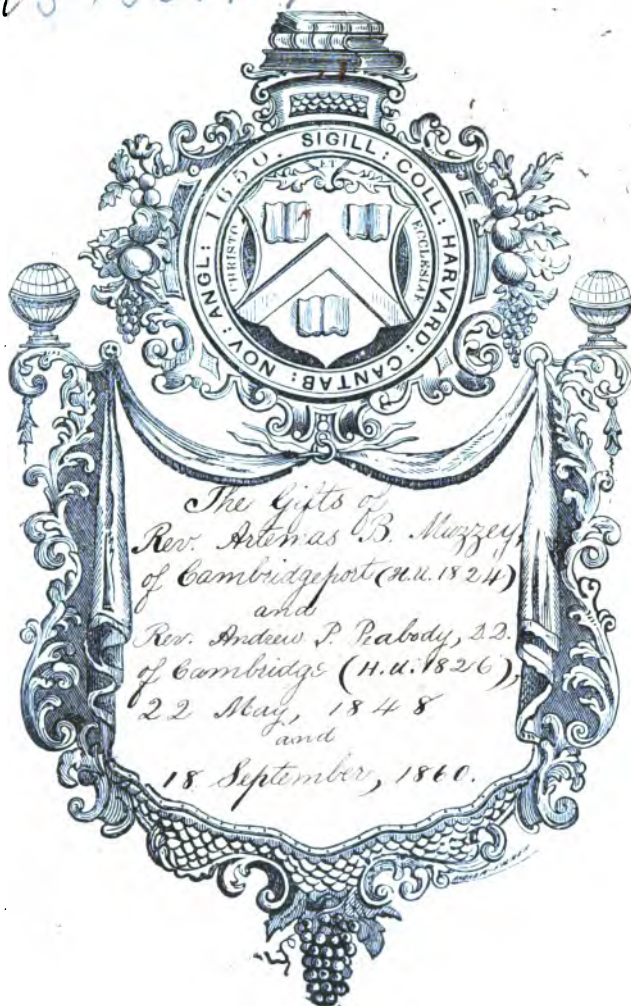 SIGILL: COLL: HARVARD: CANTAB: NOV: ANGL: 1650.
ET
CHRISTO
ECCLESIAE
The Gifts of
Rev. Artemas B. Muzzey,
of Cambridgeport (H.U. 1824)
and
Rev. Andrew P. Peabody, D.D.
of Cambridge (H.U. 1826),
22 May, 1848
and
18 September, 1860.